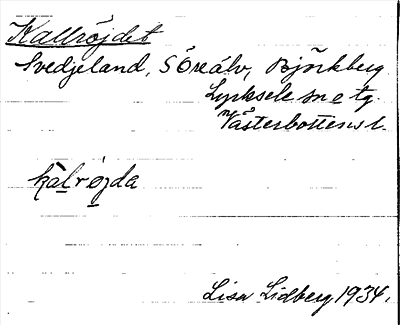 Kallröjdet
Svedjeland, S Öreälv, Björkberg
Lycksele sn o tg.
Västerbottens l.
kalrøjda
Lisa Lidberg 1934.